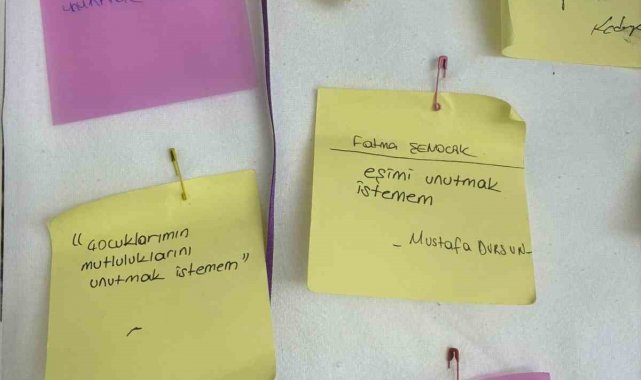 Fatma ŞENOCAK
eşimi unutmak
istemem
- Mustafa DURSUN -
"çocuklarımın
mutluluklarını
unutmak istemem"